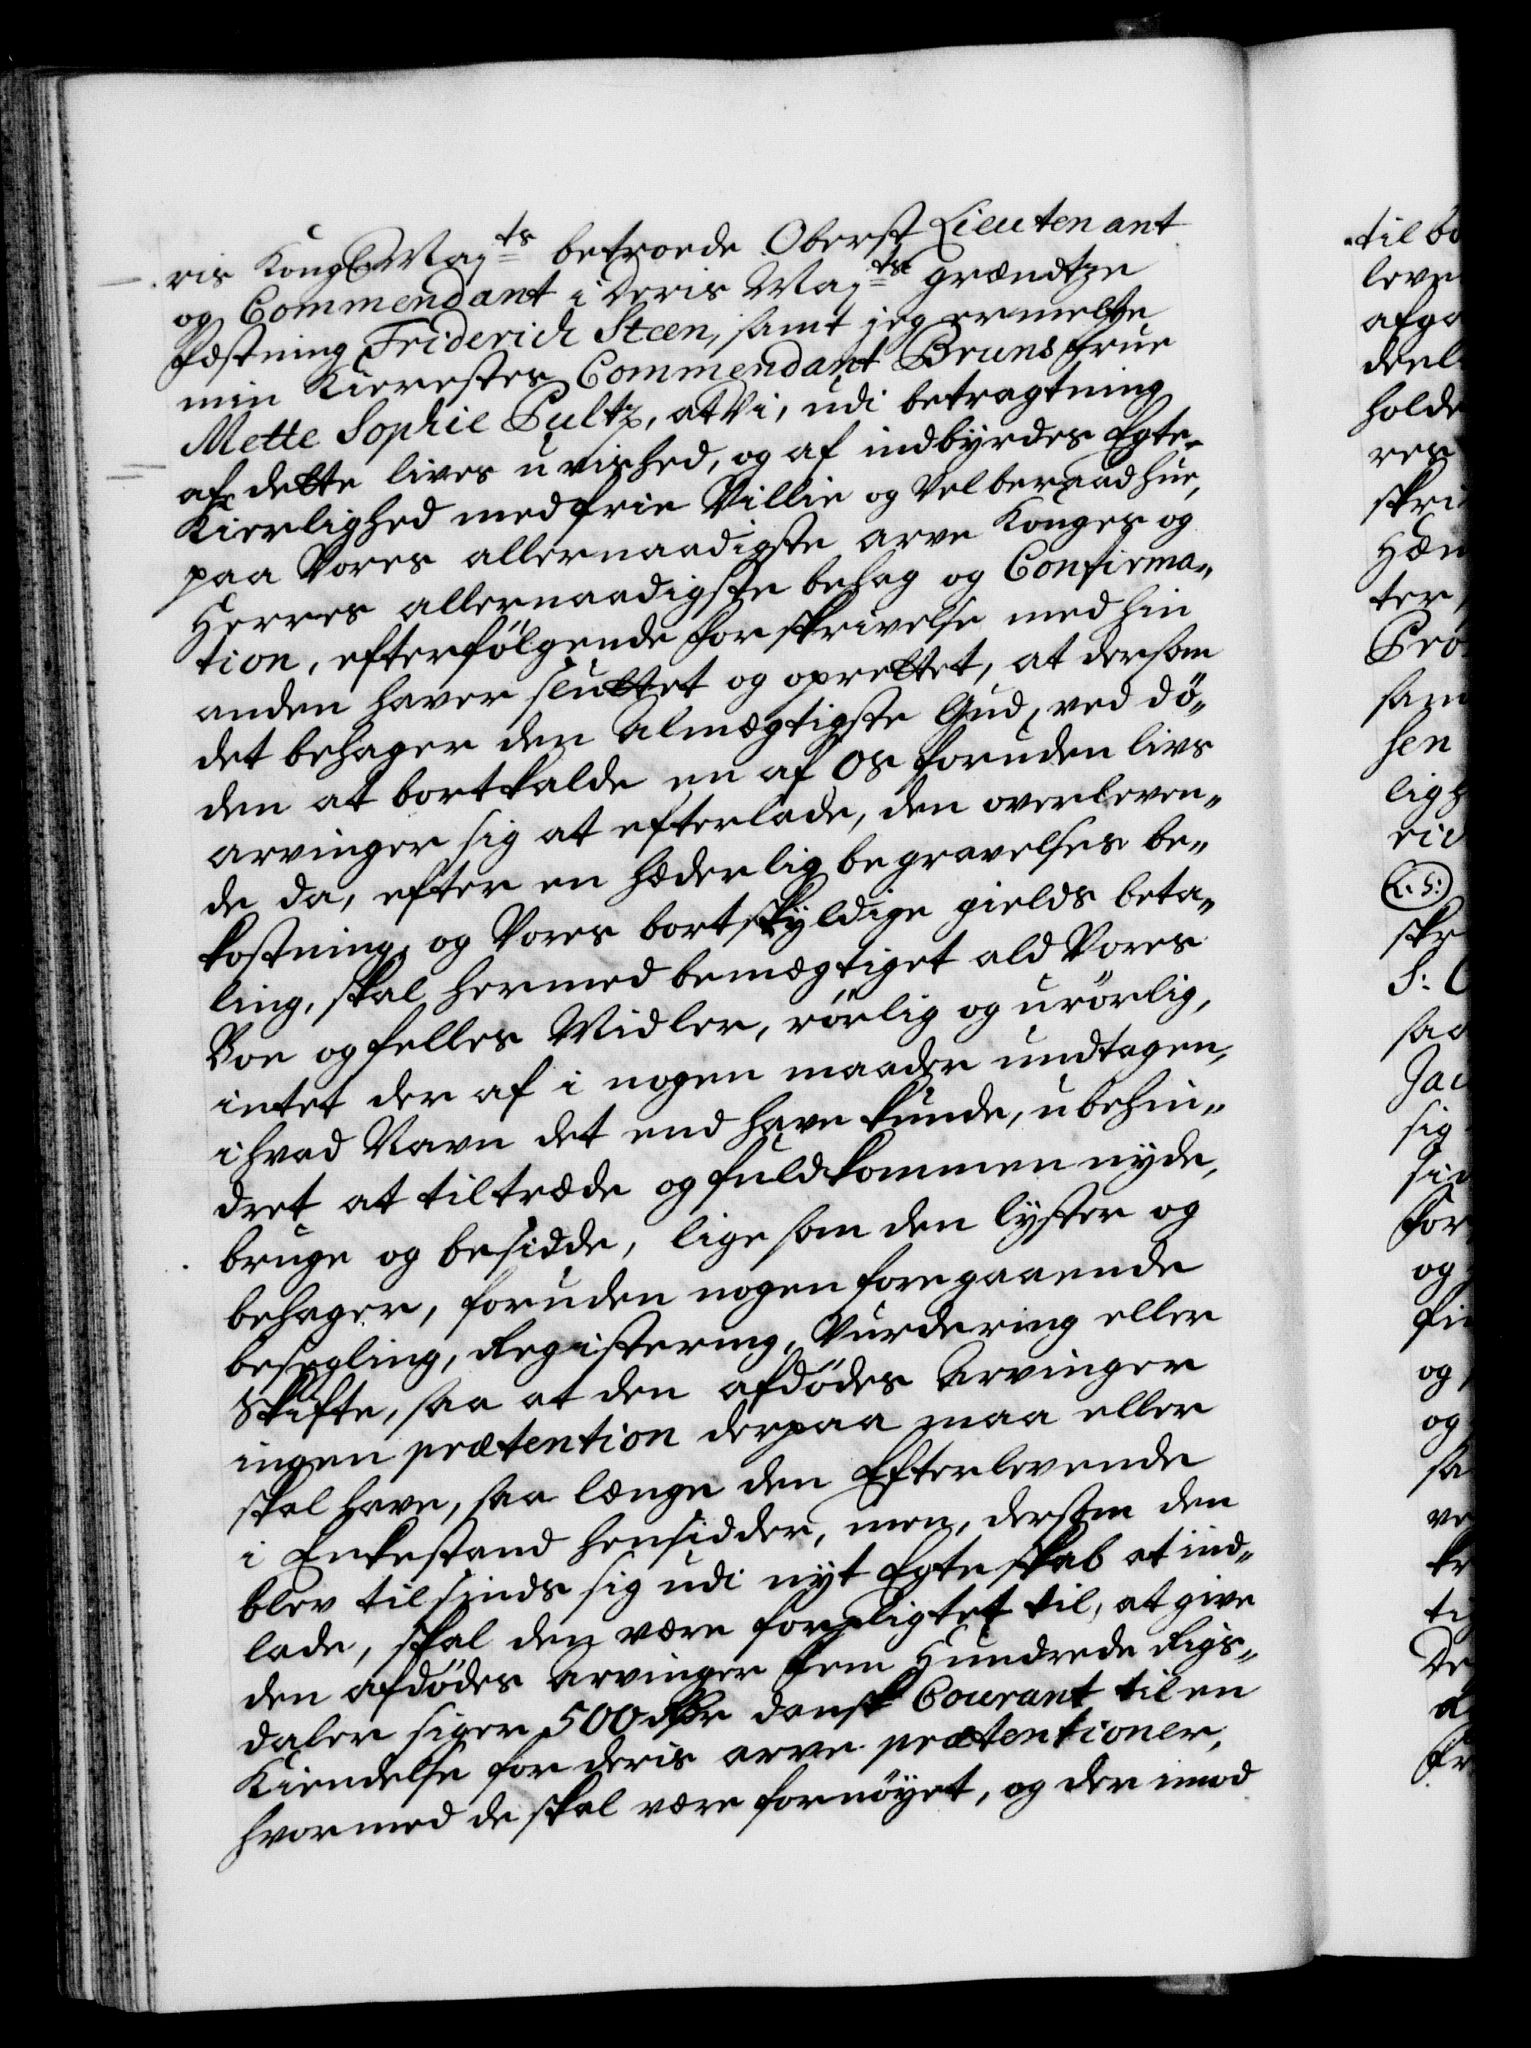 ris Kongl Maj.ts betroede Oberst Lieutenant
og Commendant i deris Maj.ts grændtze
fæstning Friderich Steen, samt jeg ermelte
min Kierestes Commendant Bruns frue
Mette Sophie Pultz, at Vi, udi betragtning
af dette lives uvished, og af indbyrdes Egte-
Kierlighed med frie Villie og Velberaad hue,
paa Vores allernaadigste arve Konges og
Herres allernaadigste behag og Confirma-
tion, efterfølgende forskrivelse med hin
anden haver sluttet og oprettet, at dersom
det behager den Almægtigste Gud, ved dö-
den at bortkalde en af Os foruden livs
arvinger sig at efterlade, den overleven-
de da, efter en hæderlig begravelses be-
kostning, og Vores bortskyldige gields beta-
ling, skal hermed bemægtiget ald Vores
Boe og felles Midler, rörlig og urörlig,
intet der af i nogen maader undtagen,
ihvad Navn det end have kunde, ubehin-
dret at tiltræde og fuldkommen nyde,
bruge og besidde, lige som den lyster og
behager, foruden nogen foregaaende
besegling, Registering, Vurdering eller
Skifte, saa at den afdödes Arvinger
ingen prætention derpaa maa eller
skal have, saa længe den Efterlevende
i Enkestand hensidder, men, dersom den
blev tilsinds sig udi nyt Egteskab at ind-
lade, skal den være forpligtet til, at give
den afdödes Arvinger fem Hundrede Rigs-
daler siger 500 Rdr dansk Courant til en
Kiendelse for deris arve prætentioner,
hvormed de skal være fornöyet, og der imod